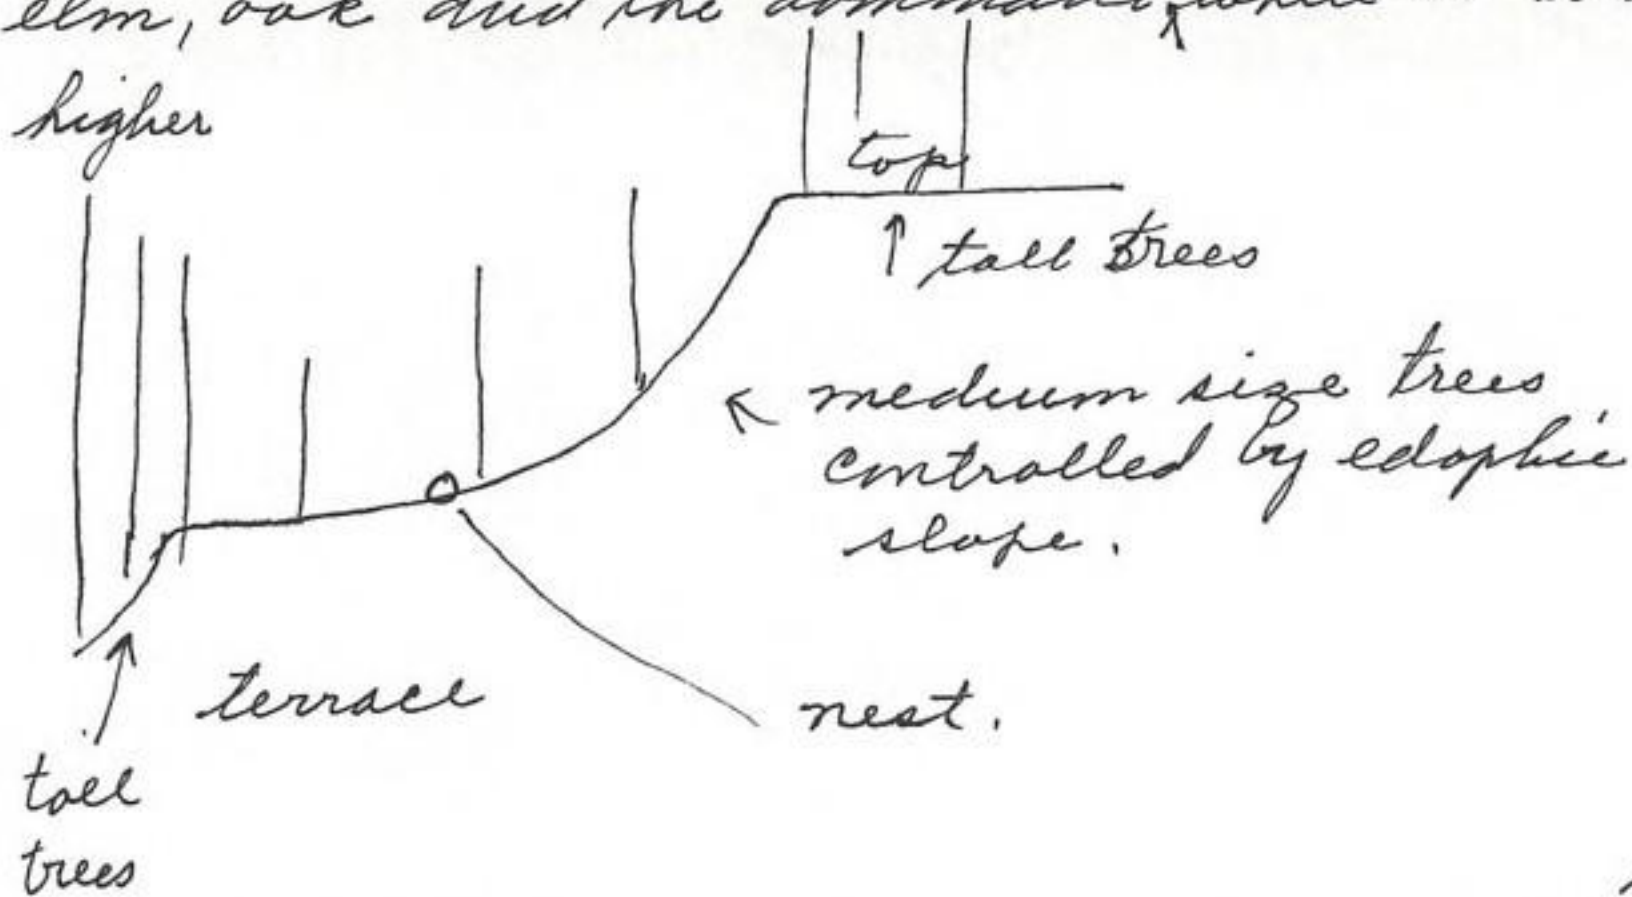 elm, oak and the dominant, while
higher
top
tall trees
medium size trees
controlled by edaphic
slope.
terrace
nest.
tall
trees